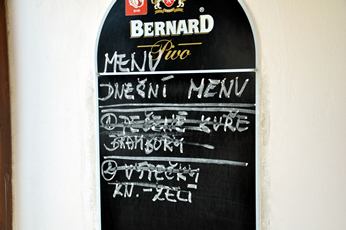 BERNARD
Pivo
MENU
DNEŠNÍ MENU
① PEČENÉ KUŘE
BRAMBORY
② VÝPEČKY
KN. - ZELÍ